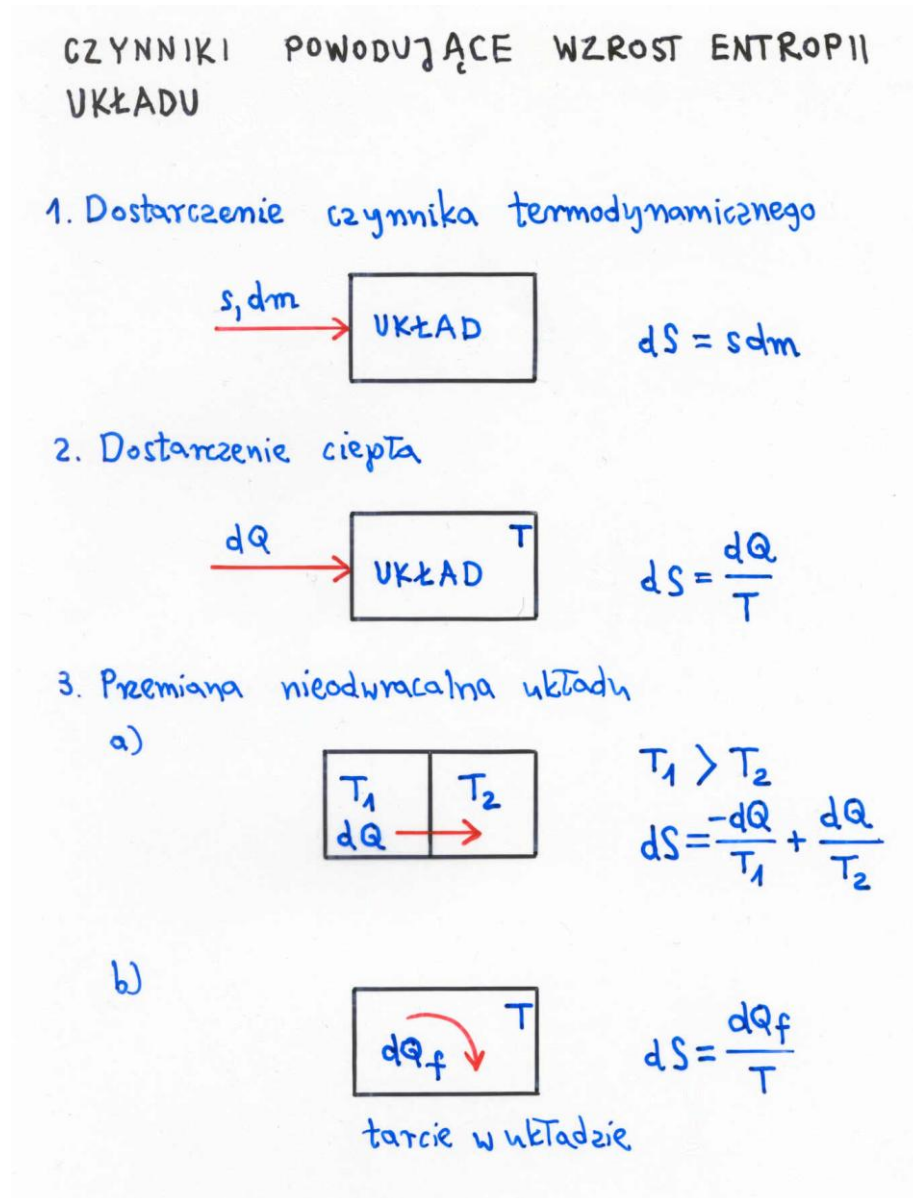 CZYNNIKI POWODUJĄCE WZROST ENTROPII
UKŁADU
1. Dostarczenie czynnika termodynamicznego
s, dm
UKŁAD
dS = sdm
2. Dostarczenie ciepła
dQ
T
UKŁAD
dS = dQ/T
3. Przemiana nieodwracalna układu
a)
T₁ T₂
dQ
T₁ > T₂
dS = -dQ/T₁ + dQ/T₂
b)
T
dQf
dS = dQf/T
tarcie w układzie